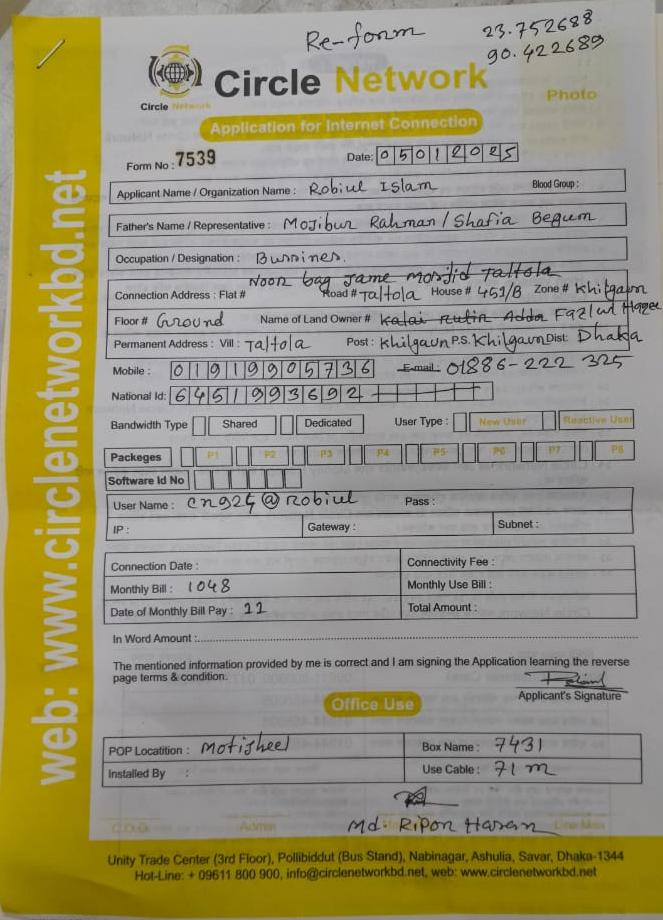 Re-form
23.752688
90.422689
Circle Network
Circle Network
Photo
Application for Internet Connection
Form No : 7539
Date: 05012025
Applicant Name / Organization Name : Robiul Islam Blood Group :
Father's Name / Representative : Mojibur Rahman / Shafia Begum
Occupation / Designation : Bussines.
Noor bag Jame Mosjid Taltola
Connection Address : Flat # Road # Taltola House # 451/B Zone # Khilgaun
Floor # Ground Name of Land Owner # Fazlul
Permanent Address : Vill : Taltola Post : Khilgaun P.S. Khilgaun Dist: Dhaka
Mobile : 01919905736 E-mail 01886-222 325
National Id: 6451993692
Bandwidth Type Shared Dedicated User Type : New User Reactive User
Packeges P1 P2 P3 P4 P5 P6 P7 P8
Software Id No
User Name : cng24@Robiul Pass :
IP : Gateway : Subnet :
Connection Date : Connectivity Fee :
Monthly Bill : 1048 Monthly Use Bill :
Date of Monthly Bill Pay : 11 Total Amount :
In Word Amount :
The mentioned information provided by me is correct and I am signing the Application learning the reverse
page terms & condition.
Applicant's Signature
Office Use
POP Locatition : Motijheel Box Name : 7431
Installed By : Use Cable : 71 m
C.O.O. Admin Line Man
Md. Ripon Hasan
Unity Trade Center (3rd Floor), Pollibiddut (Bus Stand), Nabinagar, Ashulia, Savar, Dhaka-1344
Hot-Line: + 09611 800 900, info@circlenetworkbd.net, web: www.circlenetworkbd.net
web: www.circlenetworkbd.net